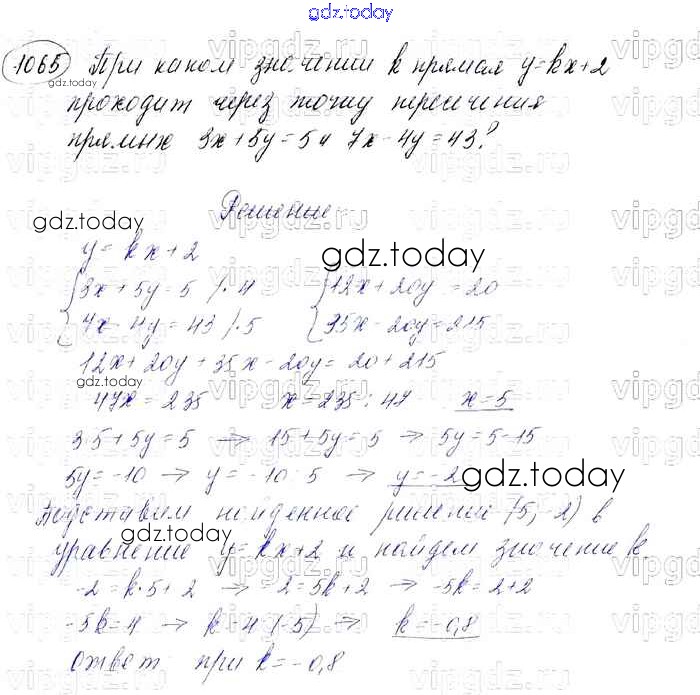 gdz.today
1065 При каком значении k прямая y=kx+2
gdz.today
проходит через точку пересечения
прямых 3x+5y=5 и 7x-4y=43?
Решение
gdz.today
y=kx+2
gdz.today
3x+5y=5 /·4 12x+20y=20
7x-4y=43 /·5 35x-20y=215
12x+20y+35x-20y=20+215
gdz.today
47x=235 x=235:47 x=5
3·5+5y=5 → 15+5y=5 → 5y=5-15
5y=-10 → y=-10:5 → y=-2
gdz.today
Подставим найденное решение (5;-2) в
gdz.today
уравнение y=kx+2 и найдем значение k
-2=k·5+2 → -2=5k+2 → -5k=2+2
-5k=4 → k=4:(-5) → k=-0,8
ответ: при k=-0,8